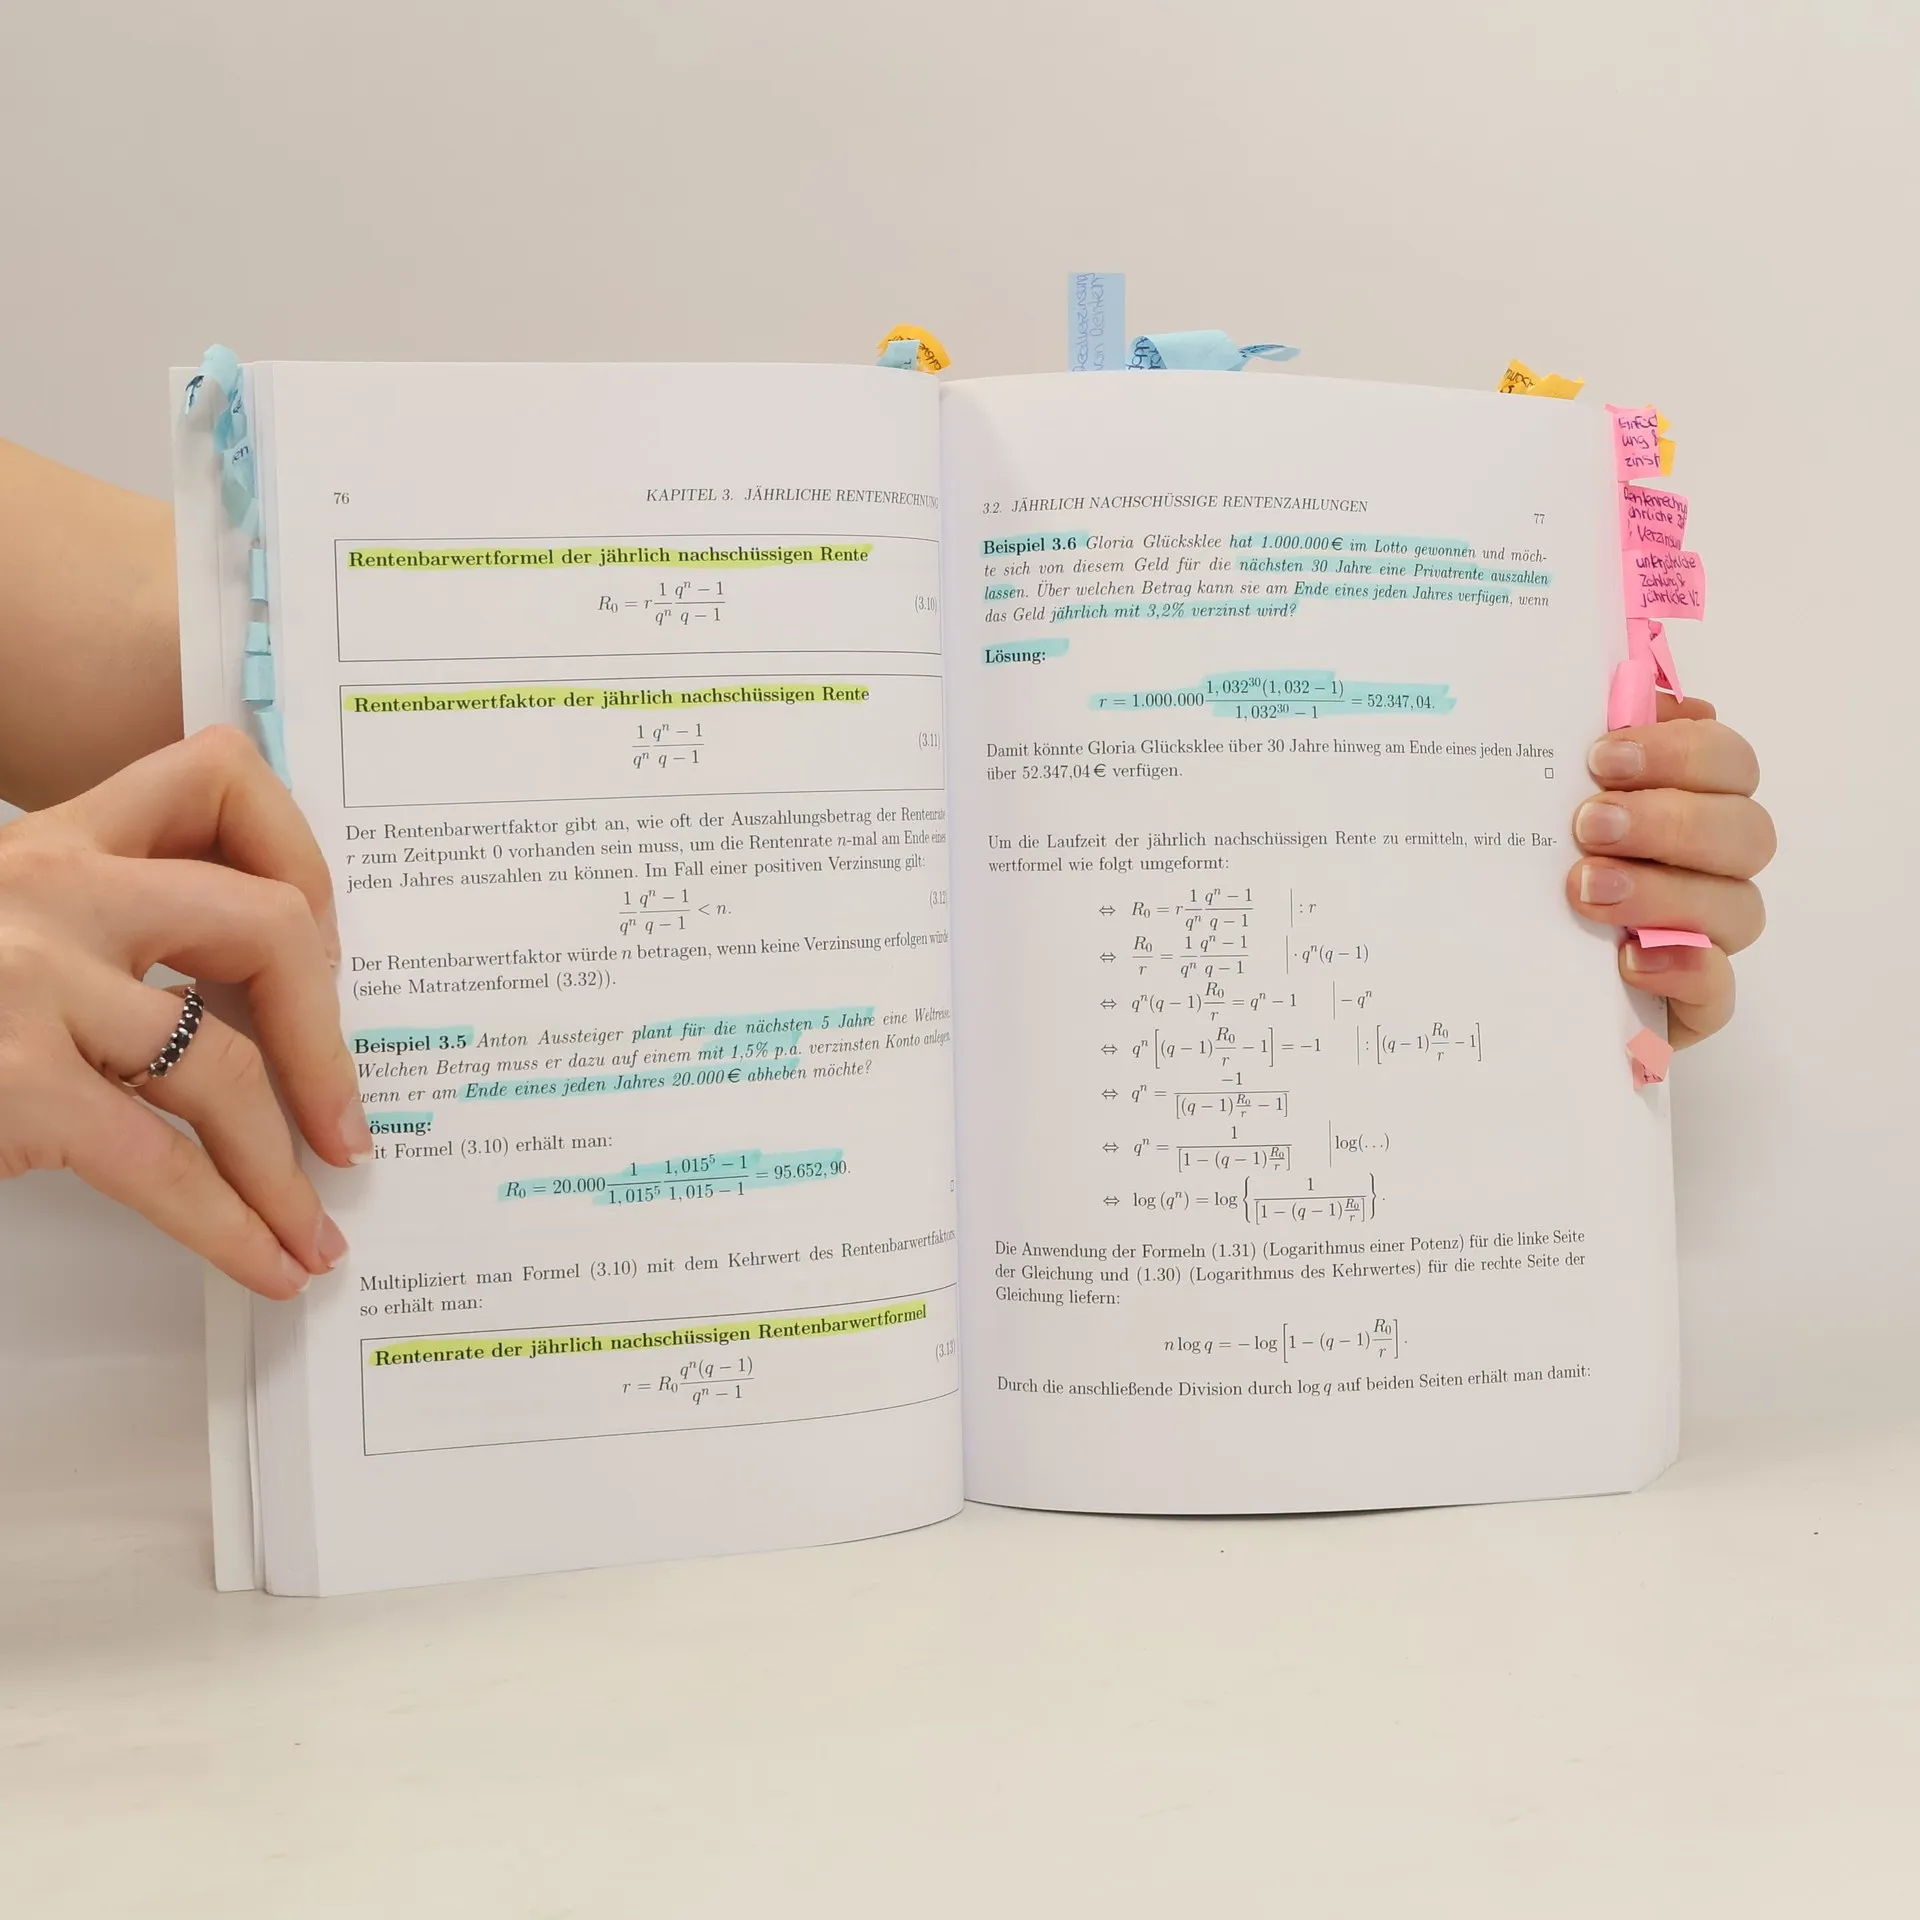 76
KAPITEL 3. JÄHRLICHE RENTENRECHNUNG
Rentenbarwertformel der jährlich nachschüssigen Rente
R₀ = r 1/qⁿ (qⁿ − 1)/(q − 1) (3.10)
Rentenbarwertfaktor der jährlich nachschüssigen Rente
1/qⁿ (qⁿ − 1)/(q − 1) (3.11)
Der Rentenbarwertfaktor gibt an, wie oft der Auszahlungsbetrag der Rentenrate
r zum Zeitpunkt 0 vorhanden sein muss, um die Rentenrate n-mal am Ende eines
jeden Jahres auszahlen zu können. Im Fall einer positiven Verzinsung gilt:
1/qⁿ (qⁿ − 1)/(q − 1) < n. (3.12
Der Rentenbarwertfaktor würde n betragen, wenn keine Verzinsung erfolgen würde
(siehe Matratzenformel (3.32)).
Beispiel 3.5 Anton Aussteiger plant für die nächsten 5 Jahre eine Weltreise.
Welchen Betrag muss er dazu auf einem mit 1,5% p.a. verzinsten Konto anlegen,
wenn er am Ende eines jeden Jahres 20.000 € abheben möchte?
ösung:
it Formel (3.10) erhält man:
R₀ = 20.000 1/1,015⁵ (1,015⁵ − 1)/(1,015 − 1) = 95.652,90.
Multipliziert man Formel (3.10) mit dem Kehrwert des Rentenbarwertfaktors
so erhält man:
Rentenrate der jährlich nachschüssigen Rentenbarwertformel
r = R₀ qⁿ(q − 1)/(qⁿ − 1) (3.13)
3.2. JÄHRLICH NACHSCHÜSSIGE RENTENZAHLUNGEN
77
Beispiel 3.6 Gloria Glücksklee hat 1.000.000 € im Lotto gewonnen und möch-
te sich von diesem Geld für die nächsten 30 Jahre eine Privatrente auszahlen
lassen. Über welchen Betrag kann sie am Ende eines jeden Jahres verfügen, wenn
das Geld jährlich mit 3,2% verzinst wird?
Lösung:
r = 1.000.000 1,032³⁰(1,032 − 1)/(1,032³⁰ − 1) = 52.347,04.
Damit könnte Gloria Glücksklee über 30 Jahre hinweg am Ende eines jeden Jahres
über 52.347,04 € verfügen.
Um die Laufzeit der jährlich nachschüssigen Rente zu ermitteln, wird die Bar-
wertformel wie folgt umgeformt:
⇔ R₀ = r 1/qⁿ (qⁿ − 1)/(q − 1) | : r
⇔ R₀/r = 1/qⁿ (qⁿ − 1)/(q − 1) | · qⁿ(q − 1)
⇔ qⁿ(q − 1) R₀/r = qⁿ − 1 | − qⁿ
⇔ qⁿ [(q − 1) R₀/r − 1] = −1 | : [(q − 1) R₀/r − 1]
⇔ qⁿ = −1/[(q − 1) R₀/r − 1]
⇔ qⁿ = 1/[1 − (q − 1) R₀/r] | log(...)
⇔ log (qⁿ) = log {1/[1 − (q − 1) R₀/r]}.
Die Anwendung der Formeln (1.31) (Logarithmus einer Potenz) für die linke Seite
der Gleichung und (1.30) (Logarithmus des Kehrwertes) für die rechte Seite der
Gleichung liefern:
n log q = − log [1 − (q − 1) R₀/r].
Durch die anschließende Division durch log q auf beiden Seiten erhält man damit:
von Renten
ung
zinsr
Verzinsung
unterjährliche
Zahlung &
jährliche VZ